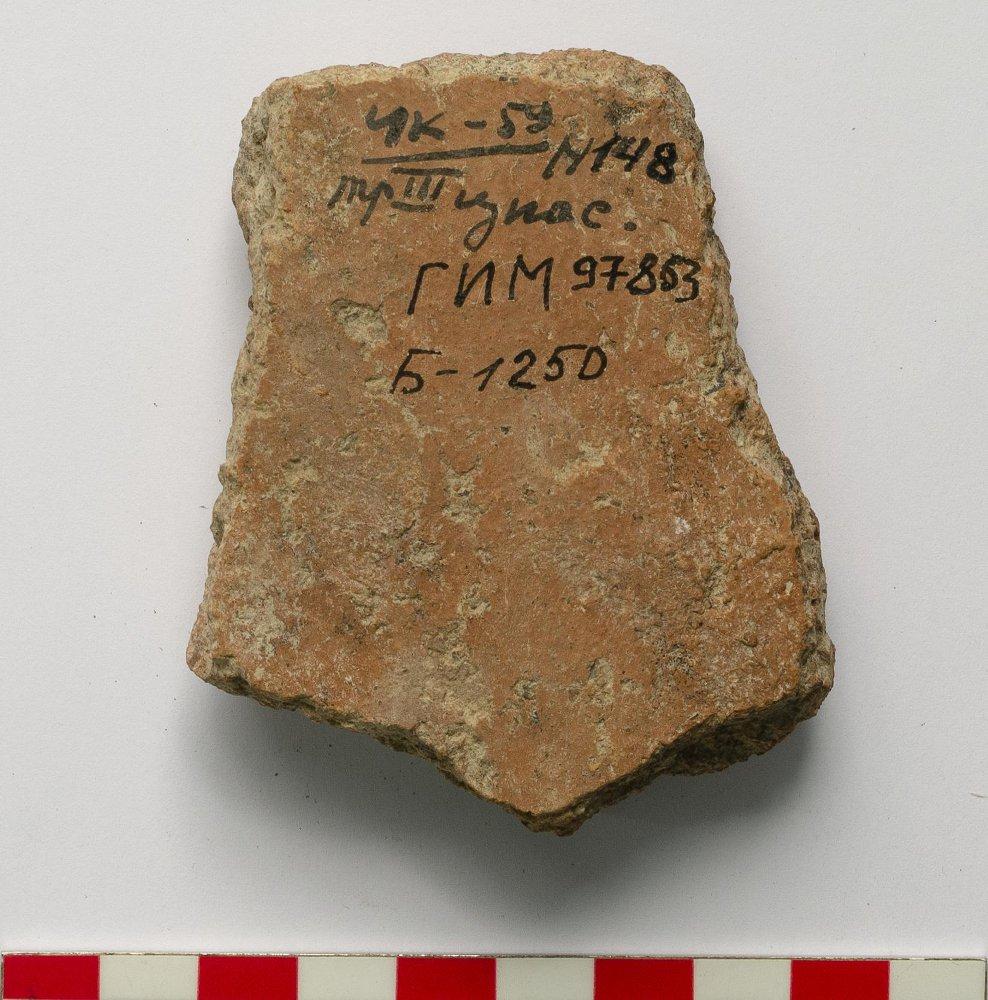 ЧК-59 N148
тр III цпос.
ГИМ 97853
Б-1250